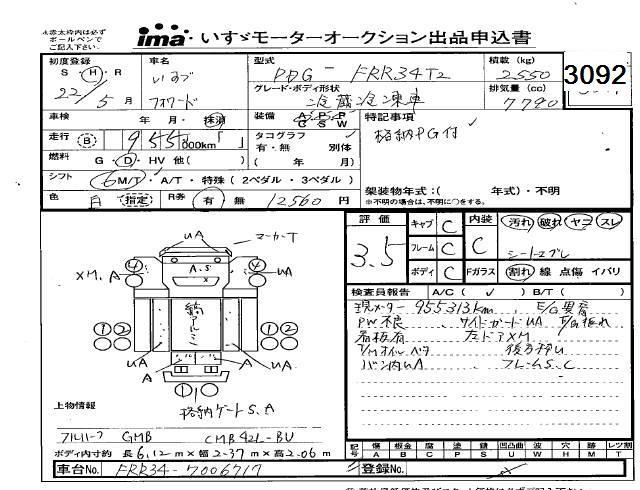 太枠内は必ず
ボールペンで
ご記入下さい。
ima いすゞモーターオークション出品申込書
初度登録 S・H・R
22年 5月
車名 いすゞ
フォワード
型式 PDG - FRR34T2
グレード・ボディ形状
冷蔵冷凍車
積載 (kg) 2550
排気量 (cc) 7790
3092
車検 年・月・抹消
装備 A/C P/S P/W
特記事項
格納PG付
走行 B 955,000km「 」
タコグラフ
有・無 別体
( 年 月)
燃料 G・D・HV 他( )
シフト 6M/T・A/T・特殊 (2ペダル・3ペダル)
架装物年式:( 年式)・不明
※不明の場合は、不明に○をする。
色 白 指定
R券 有 無 12560円
評価 3.5
キャブ C
フレーム C
ボディ C
内装 C
汚れ 破れ ヤコゲ スレ
シートスブレ
Fガラス 割れ 線 点傷 イパリ
検査員報告 A/C ( ✓ ) B/T ( )
現メーター955313km、E/G異音
PW不良、サイドガードUA
看板有 左ドアXM
T/Mオイルベタ
バン内UA フレームS.C
UA マーカーT
XM.A A.S UA
4 4
UA UA
2 1 1 2
A A
1
格納ゲートS.A
上物情報
GMB CMB42L-BU
ボディ内寸約 長6.12m×幅2.37m×高2.06m
記号 傷 板金 腐 塗 錆 凹凸曲 波 穴 欠 レツ割
A B C P S U W H M T
車台No. FRR34-7006717
登録No.